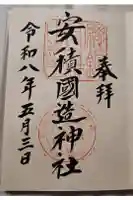 奉拝
安積國造神社
令和八年五月三日